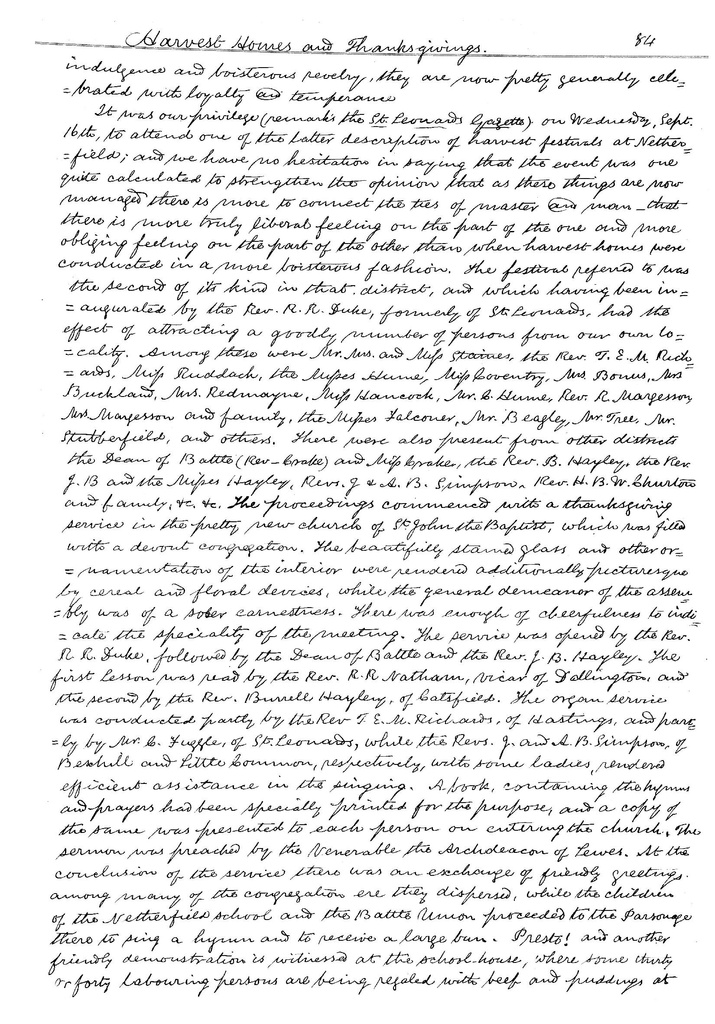 Harvest Homes and Thanksgivings. 84
indulgence and boisterous revelry, they are now pretty generally cele=
=brated with loyalty and temperance
It was our privilege (remarks the St. Leonards Gazette) on Wednesday, Sept.
16th, to attend one of the latter description of harvest festivals at Nether=
=field; and we have no hesitation in saying that the event was one
quite calculated to strengthen the opinion that as these things are now
managed there is more to connect the ties of master and man—that
there is more truly liberal feeling on the part of the one and more
obliging feeling on the part of the other than when harvest homes were
conducted in a more boisterous fashion. The festival referred to was
the second of its kind in that district, and which having been in=
=augurated by the Rev. R. R. Duke, formerly of St. Leonards, had the
effect of attracting a goodly number of persons from our own lo=
=cality. Among these were Mr. Mrs. and Miss Staines, the Rev. T. E. M. Rich=
=ards, Miss Ruddach, the Misses Hume, Miss Coventry, Mrs. Bonus, Mrs
Buckland, Mrs. Redmayne, Miss Hancock, Mr. C. Hume, Rev. R. Margesson,
Mrs. Margesson and family, the Misses Falconer, Mr. Beagley, Mr. Tree, Mr.
Stubberfield, and others. There were also present from other districts
the Dean of Battle (Rev—Crake) and Miss Crake, the Rev. B. Hayley, the Rev.
J. B and the Misses Hayley, Revs. J & A. B. Simpson, Rev. H. B. W. Churton
and family, &c. &c. The proceedings commenced with a thanksgiving
service in the pretty new church of St John the Baptist, which was filled
with a devout congregation. The beautifully stained glass and other or=
=namentation of the interior were rendered additionally picturesque
by cereal and floral devices, while the general demeaner of the assem
=bly was of a sober earnestness. There was enough of cheerfulness to indi=
=cate the speciality of the meeting. The service was opened by the Rev.
R. R. Duke, followed by the Dean of Battle and the Rev. J. B. Hayley. The
first Lesson was read by the Rev. R. R Natham, Vicar of Dallington, and
the second by the Rev. Burrell Hayley, of Catsfield. The organ service
was conducted partly by the Rev T. E. M. Richards, of Hastings, and part=
=ly by Mr. C. Fuggle, of St. Leonards, while the Revs. J. and A. B. Simpson, of
Bexhill and Little Common, respectively, with some ladies, rendered
efficient assistance in the singing. A book, containing the hymns
and prayers had been specially printed for the purpose, and a copy of
the same was presented to each person on entering the church. The
sermon was preached by the Venerable the Archdeacon of Lewes. At the
conclusion of the service there was an exchange of friendly greetings
among many of the congregation ere they dispersed, while the children
of the Netherfield school and the Battle Union proceeded to the Parsonage
there to sing a hymn and to receive a large bun. Presto! and another
friendly demonstration is witnessed at the school-house, where some thirty
or forty labouring persons are being regaled with beef and puddings at